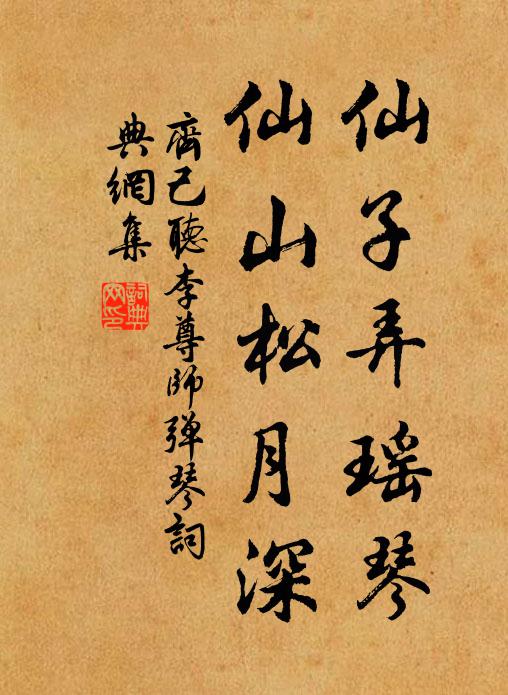 仙子弄瑶琴
仙山松月深
齊己聽李尊師弹琴詞
典網集
詞典網印